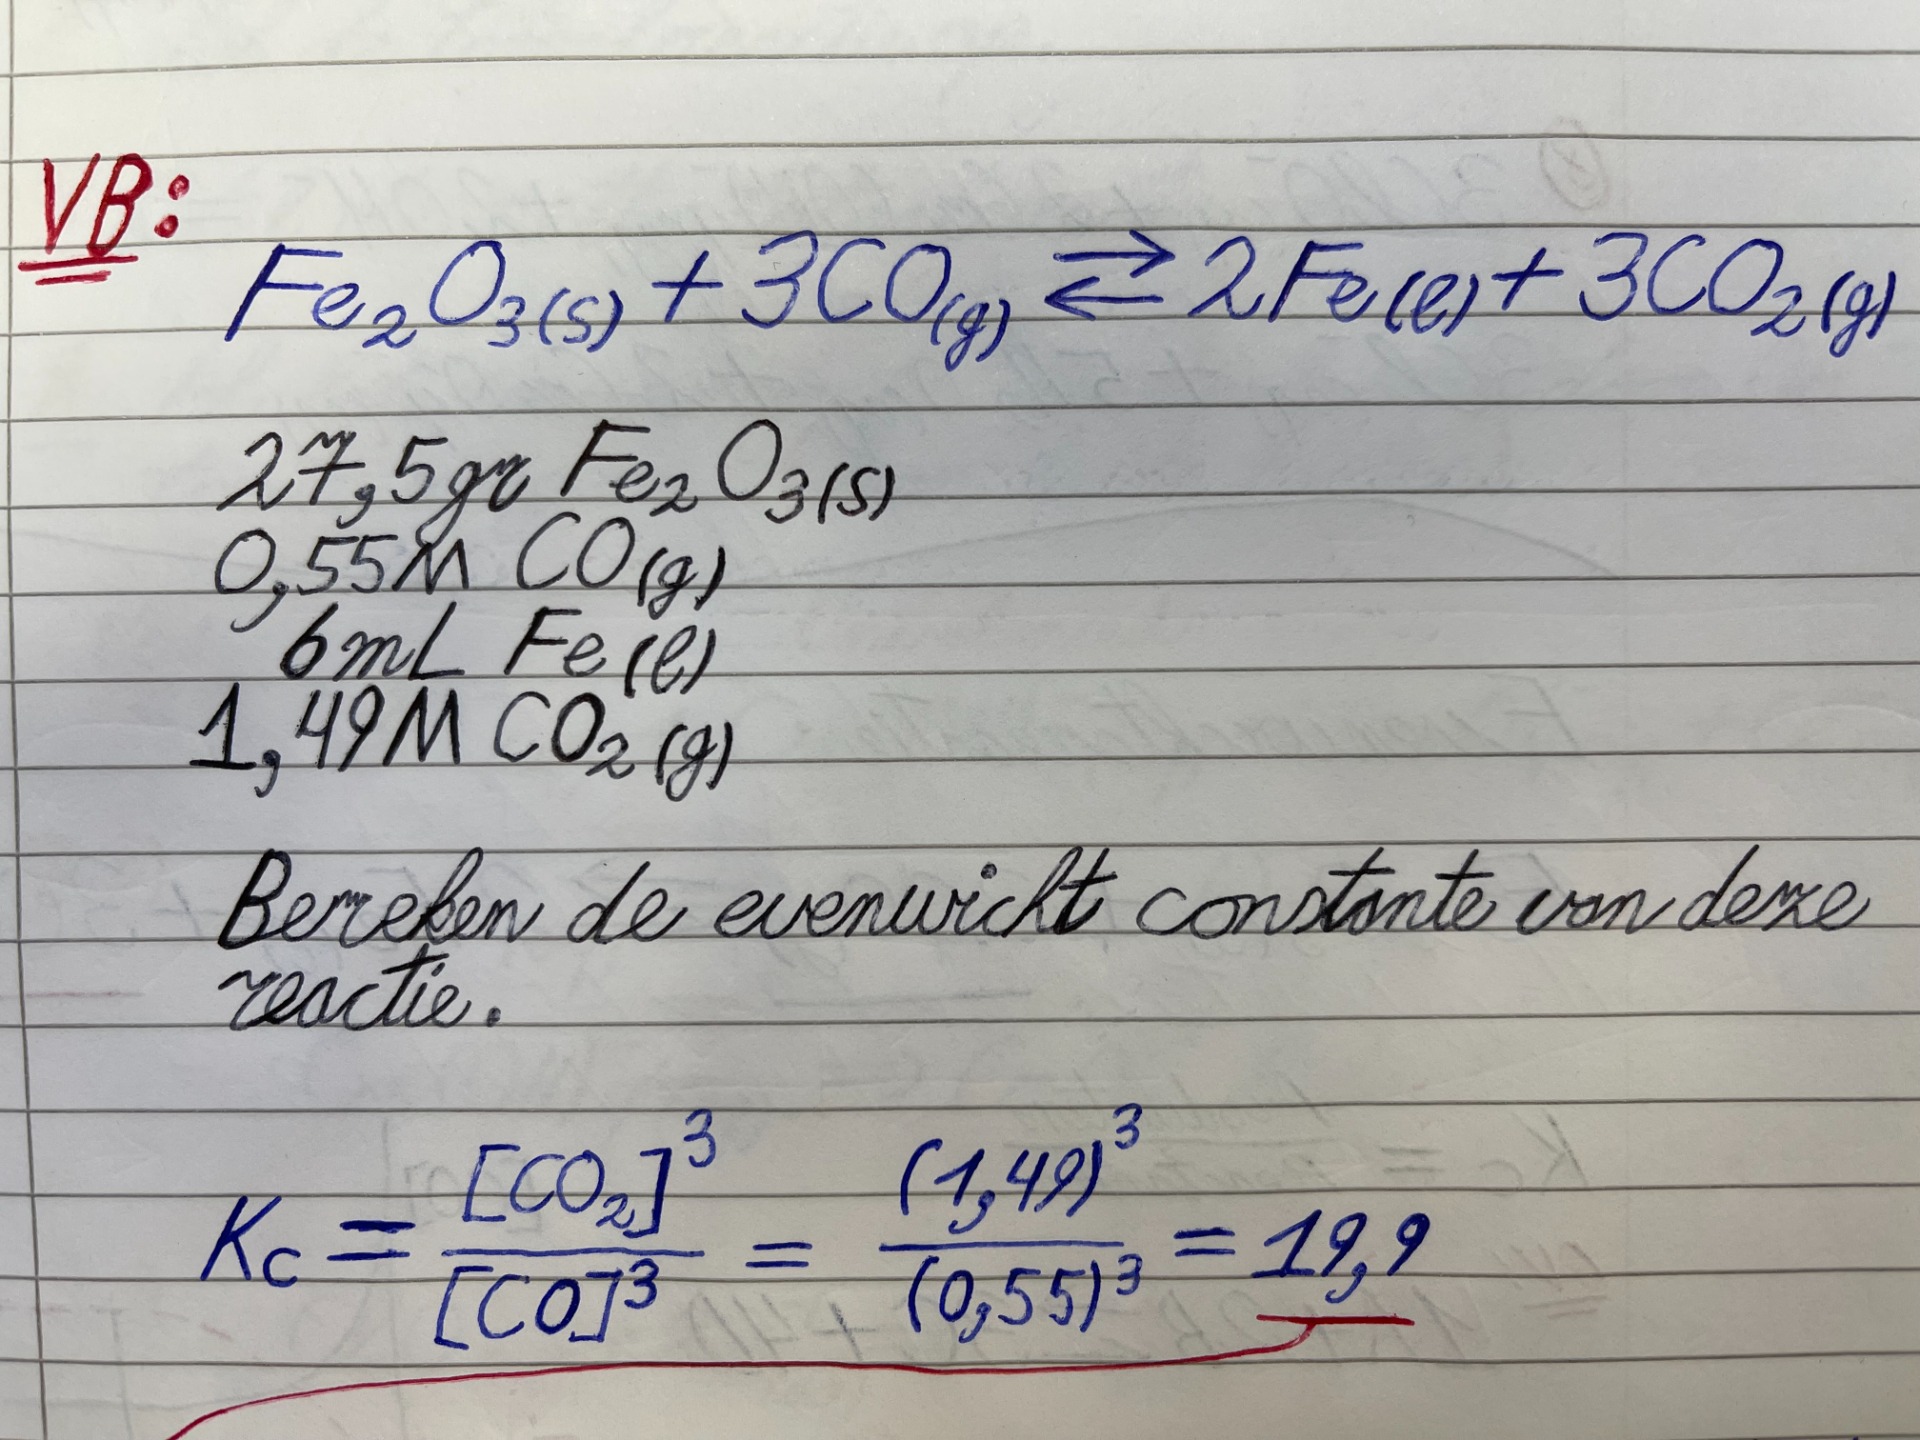 VB:
Fe₂O₃(s) + 3CO(g) ⇄ 2Fe(l) + 3CO₂(g)
27,5gr Fe₂O₃(s)
0,55M CO(g)
6mL Fe(l)
1,49M CO₂(g)
Bereken de evenwicht constante van deze
reactie.
Kc = [CO₂]³/[CO]³ = (1,49)³/(0,55)³ = 19,9